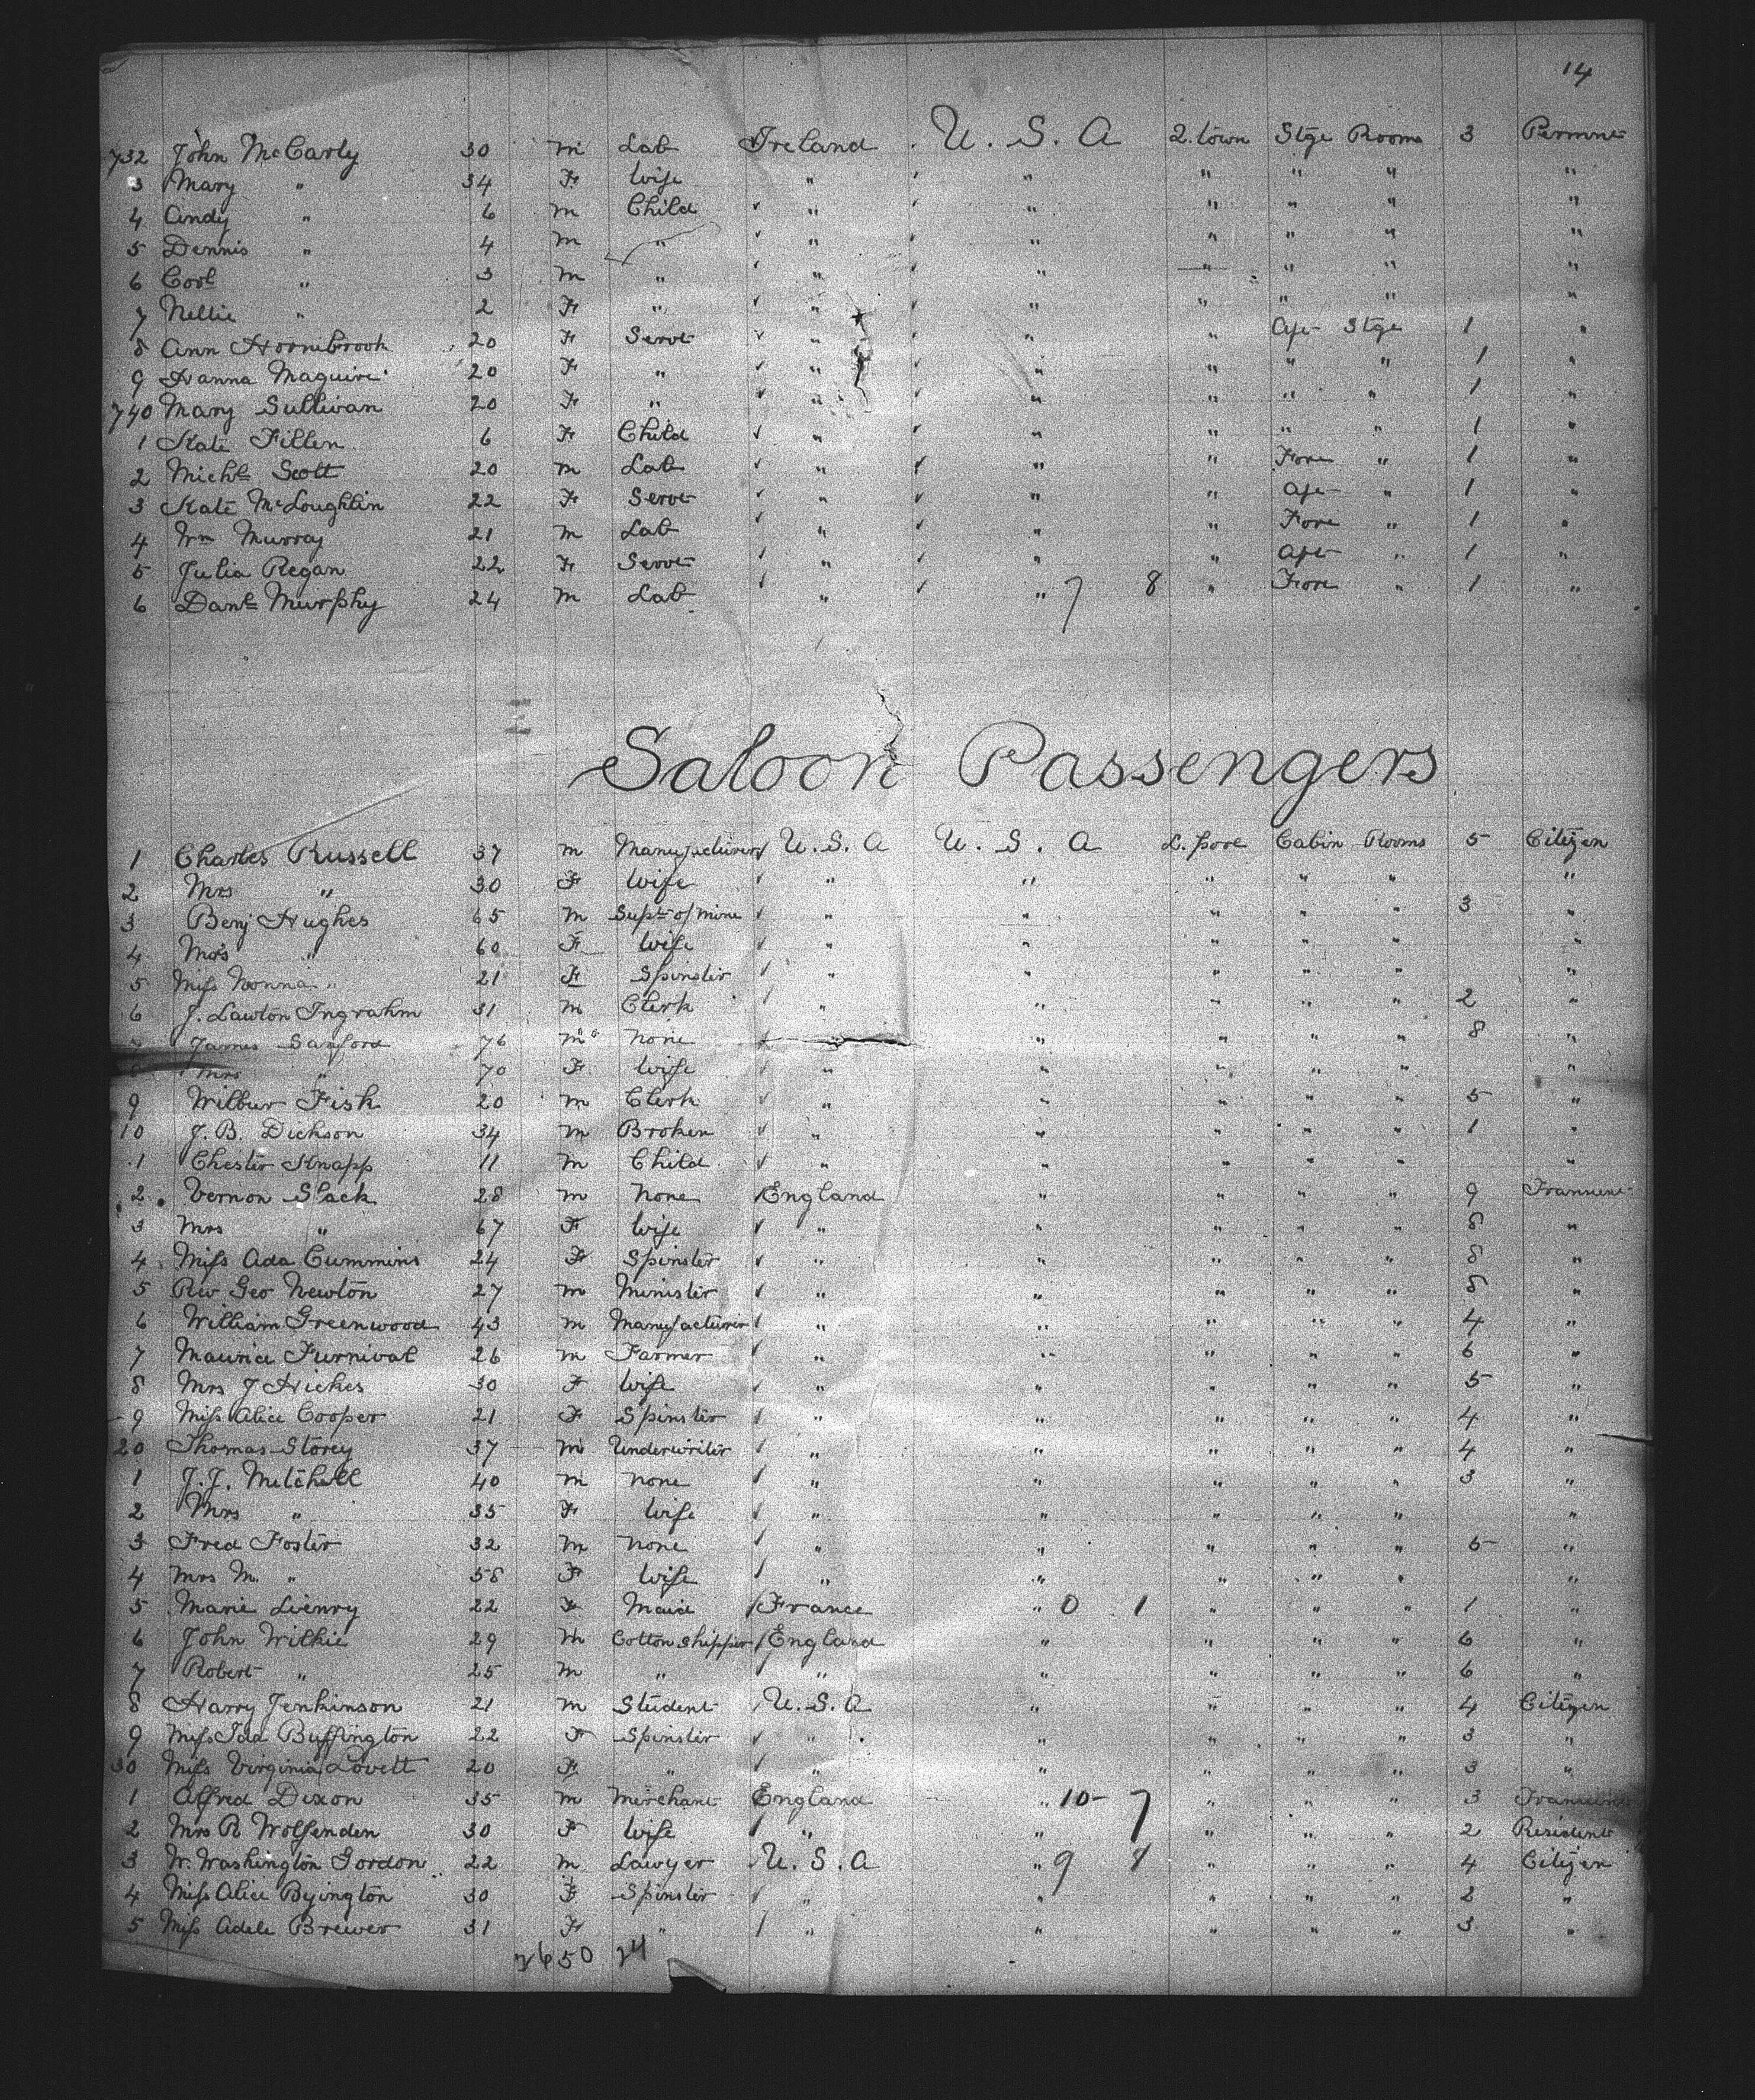 14
732 John McCarty 30 m Lab Ireland U. S. A Q. town Stge Rooms 3 Permnt
3 Mary " 34 F Wife " " " " " "
4 Andy " 6 m Child " " " " " "
5 Dennis " 4 m " " " " " " "
6 " 3 m " " " " " " "
7 Nellie " 2 F " " " " " " "
8 Ann Hornibrook 20 F Servt " " " Aft Stge 1 "
9 Hanna Maguire 20 F " " " " " " 1 "
740 Mary Sullivan 20 F " " " " " " 1 "
1 Kate Fillen 6 F Child " " " " " 1 "
2 Michl Scott 20 m Lab " " " Fore " 1 "
3 Kate McLoughlin 22 F Servt " " " Aft " 1 "
4 Wm Murray 21 m Lab " " " Fore " 1 "
5 Julia Regan 22 F Servt " " " Aft " 1 "
6 Danl Murphy 24 m Lab " " 7 8 " Fore " 1 "
Saloon Passengers
1 Charles Russell 37 m Manufacturer U. S. A U. S. A L. pool Cabin Rooms 5 Citizen
2 Mrs " 30 F Wife " " " " " "
3 Benj Hughes 65 m Supt of Mine " " " " " 3 "
4 Mrs " 60 F Wife " " " " " "
5 Miss Nonna " 21 F Spinster " " " " " "
6 J. Lawton Ingrahm 31 m Clerk " " " " " 2 "
James Sanford 76 m None " " " " 8 "
Mrs " 70 F Wife " " " " " "
9 Wilbur Fisk 20 m Clerk " " " " " 5 "
10 J. B. Dickson 34 m Broker " " " " " 1 "
1 Chester Knapp 11 m Child " " " " " "
2 Vernon Slack 28 m None England " " " " 9 Transient
3 Mrs " 67 F Wife " " " " " 8 "
4 Miss Ada Cummins 24 F Spinster " " " " " 8 "
5 Rev Geo Newton 27 m Minister " " " " " 8 "
6 William Greenwood 43 m Manufacturer " " " " " 4 "
7 Maurice Furnival 26 m Farmer " " " " " 6 "
8 Mrs J Hickes 30 F Wife " " " " " 5 "
9 Miss Alice Cooper 21 F Spinster " " " " " 4 "
20 Thomas Storey 37 m Underwriter " " " " " 4 "
1 J. J. Mitchell 40 m None " " " " " 3 "
2 Mrs " 35 F Wife " " " " " "
3 Fred Foster 32 m None " " " " " 5 "
4 Mrs M. " 58 F Wife " " " " " "
5 Marie 22 F Maid France " 0 1 " " " 1 "
6 John Wilkie 29 m Cotton Shipper England " " " " 6 "
7 Robert " 25 m " " " " " " 6 "
8 Harry Jenkinson 21 m Student U. S. A " " " " 4 Citizen
9 Miss Ida Buffington 22 F Spinster " " " " " 3 "
30 Miss Virginia Lovett 20 F " " " " " " 3 "
1 Alfred Dixon 35 m Merchant England " 10 7 " " " 3 Transient
2 Mrs R Wolfenden 30 F Wife " " " " " 2 Resident
3 W. Washington Gordon 22 m Lawyer U. S. A " 9 8 " " " 4 Citizen
4 Miss Alice Byington 30 F Spinster " " " " " 2 "
5 Miss Adele Brewer 31 F " " " " " " 3 "
2650 24